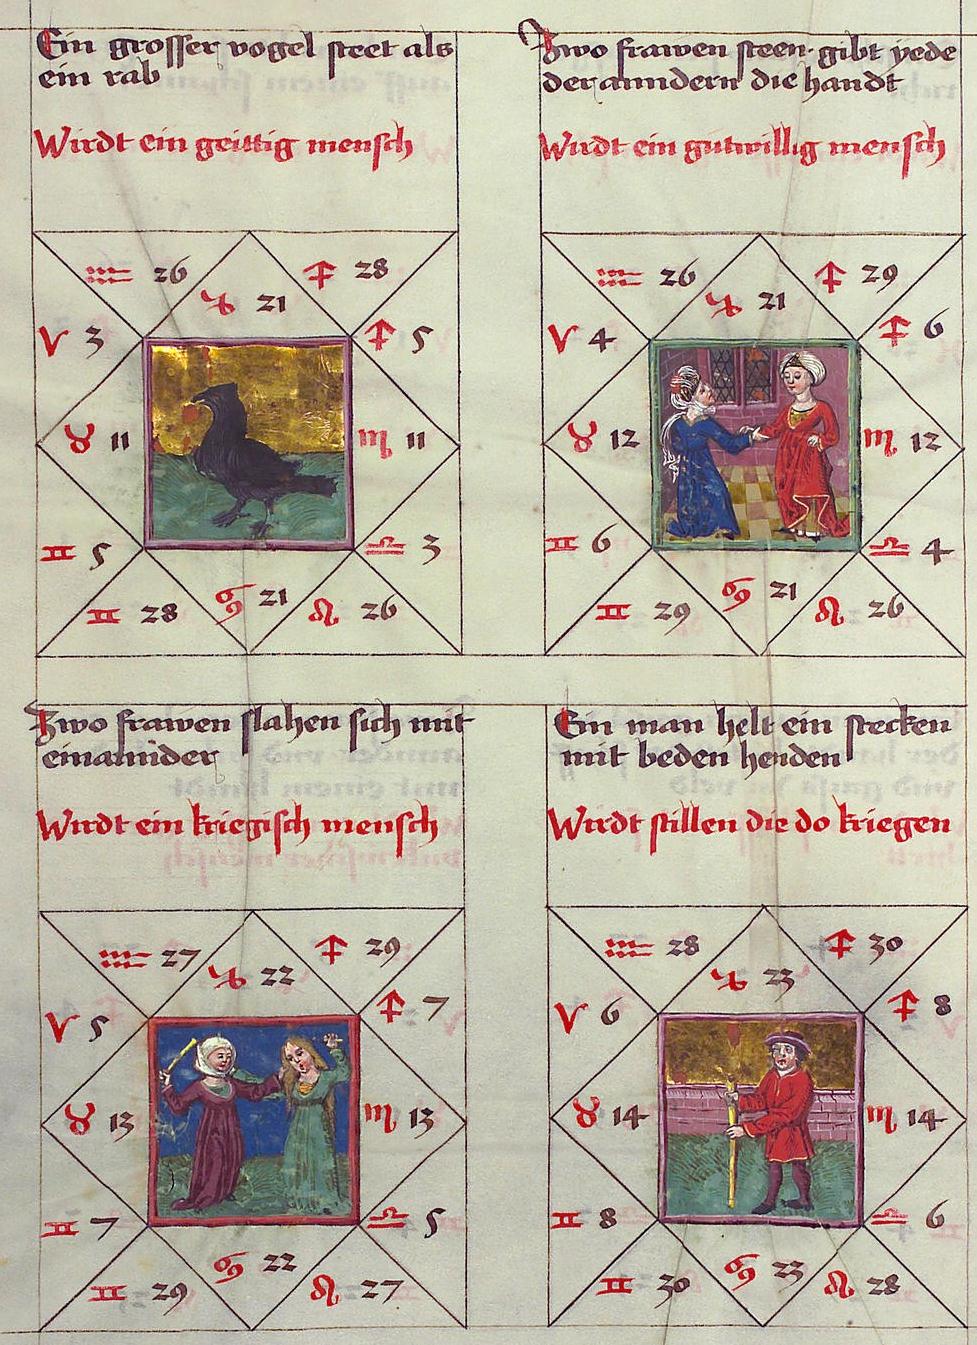 Ein grosser vogel steet als
ein rab
Wirdt ein geittig mensch
♒ 26
♑ 21
♐ 28
♈ 3
♐ 5
♉ 11
♏ 11
♊ 5
♎ 3
♊ 28
♋ 21
♌ 26
Zwo frawen steen gibt yede
der anndern die handt
Wirdt ein gutwillig mensch
♒ 26
♑ 21
♐ 29
♈ 4
♐ 6
♉ 12
♏ 12
♊ 6
♎ 4
♊ 29
♋ 21
♌ 26
Zwo frawen slahen sich mit
einannder
Wirdt ein kriegisch mensch
♒ 27
♑ 22
♐ 29
♈ 5
♐ 7
♉ 13
♏ 13
♊ 7
♎ 5
♊ 29
♋ 22
♌ 27
Ein man helt ein stecken
mit beden henden
Wirdt stillen die do kriegen
♒ 28
♑ 23
♐ 30
♈ 6
♐ 8
♉ 14
♏ 14
♊ 8
♎ 6
♊ 30
♋ 23
♌ 28